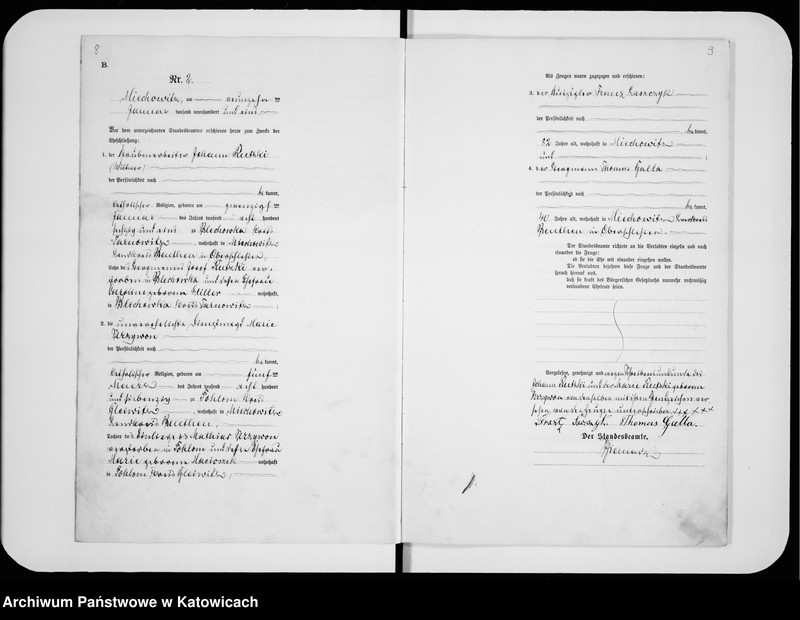 8
B.
Nr. 2.
Miechowitz, am neunzehnten
Januar tausend neunhundert und eins
Vor dem unterzeichneten Standesbeamten erschienen heute zum Zwecke der
Eheschließung:
1. der Grubenarbeiter Johann Rutzki
(Wittwer)
der Persönlichkeit nach
be kannt,
katholischer Religion, geboren am zwanzigsten
Januar des Jahres tausend acht hundert
und eins zu Blechowka Kreis
Tarnowitz, wohnhaft in Miechowitz
Landkreis Beuthen in Oberschlesien,
Sohn des Bergmanns Josef Rutzki ver-
storben in Blechowka und dessen Ehefrau
Karoline geborene wohnhaft
in Blechowka Kreis Tarnowitz;
2. die unverehelichte Dienstmagd Marie
Krzywon
der Persönlichkeit nach
be kannt,
katholischer Religion, geboren am fünften
Maerz des Jahres tausend acht hundert
und siebenzig zu Kreis
Gleiwitz, wohnhaft in Miechowitz
Landkreis Beuthen,
Tochter des Mathias Krzywon
verstorben in und dessen Ehefrau
Marie geborene wohnhaft
in Kreis Gleiwitz;
9
Als Zeugen waren zugezogen und erschienen:
3. der Franz
der Persönlichkeit nach
be kannt,
52 Jahre alt, wohnhaft in Miechowitz
und;
4. der Bergmann Thomas Galla
der Persönlichkeit nach
be kannt,
40 Jahre alt, wohnhaft in Miechowitz Landkreis
Beuthen in Oberschlesien.
Der Standesbeamte richtete an die Verlobten einzeln und nach
einander die Frage:
ob sie die Ehe mit einander eingehen wollen.
Die Verlobten bejahten diese Frage und der Standesbeamte
sprach hierauf aus,
daß sie kraft des Bürgerlichen Gesetzbuchs nunmehr rechtmäßig
verbundene Eheleute seien.
Vorgelesen, genehmigt und wegen Schreibensunkunde des
Johann Rutzki und der Marie Rutzki geborene
Krzywon von denselben mit ihren Handzeichen ver-
sehen von den Zeugen unterschrieben +++ +++
Thomas Galla.
Der Standesbeamte.
Archiwum Państwowe w Katowicach